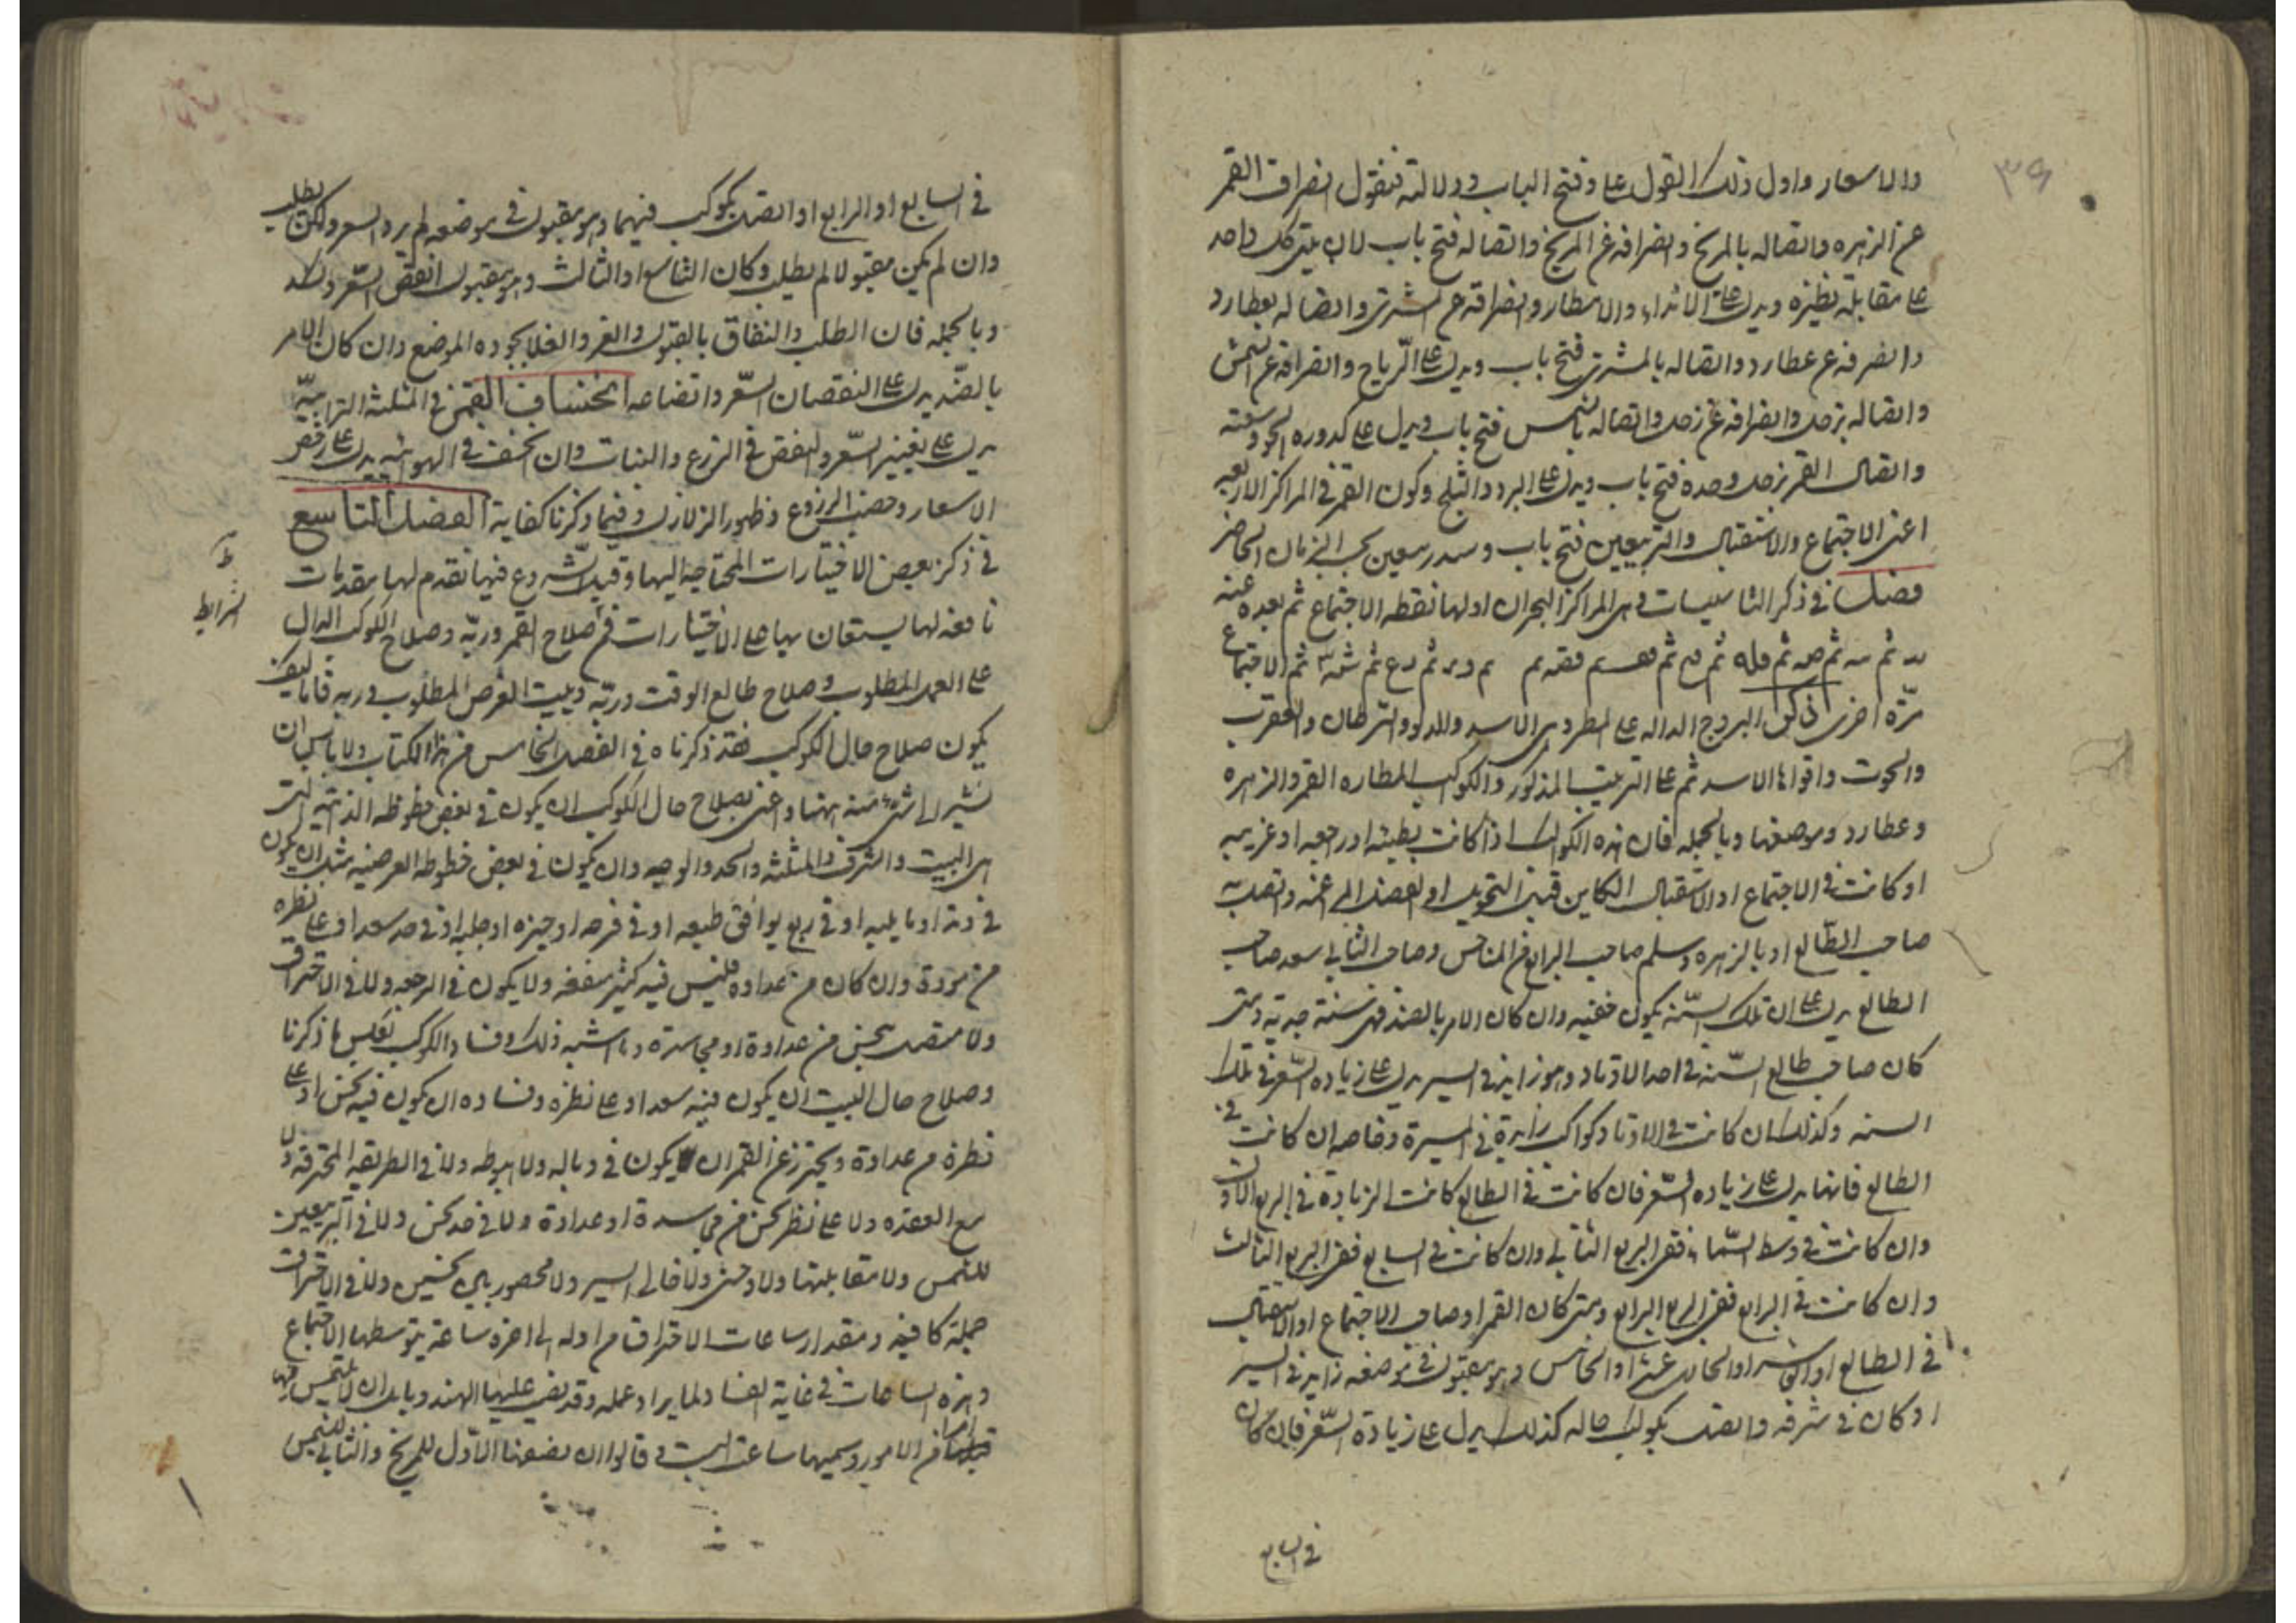 ٣٩
والاسعار واول ذلك القول على فتح الباب ودلالته فنقول انصراف القمر
عن الزهره واتصاله بالمريخ وانصرافه عن المريخ واتصاله فتح باب لان كل واحد
على مقابلة نظيره ويدل على الانداء والامطار وانصرافه عن المشترى واتصاله بعطارد
وانصرفه عن عطارد واتصاله بالمشترى فتح باب ويدل على الرّياح وانصرافه عن الشمس
واتصاله بزحل وانصرافه عن زحل واتصاله بالشمس فتح باب ويدل على كدوره الجو
واتصال القمر بزحل وحده فتح باب ويدل على البرد والثلج وكون القمر فى المراكز الاربعه
اعنى الاجتماع والاستقبال والتربيعين فتح باب بحسب الزمان الحاضر
فصل فى ذكر التاسيسات وهى المراكز البحران اولها نقطه الاجتماع ثم بعده عنه
ثم ثم ثم ثم ثم ثم ثم الاجتماع
مرّة اخرى البروج الداله على المطر وهى الاسد والدلو والسرطان والعقرب
والحوت واقواها الاسد ثم على الترتيب المذكور والكواكب المطاره القمر والزهره
وعطارد وموضعها وبالجمله فان هذه الكواكب اذا كانت بطيئه او راجعه او غربيه
او كانت فى الاجتماع او الاستقبال الكاين قبيل التحويل او الفصل واتصل به
صاحب الطالع او بالزهره وسلم صاحب الرابع من المناحس وصاحب الثانى سعد صاحب
الطالع يدل على ان تلك السّنه يكون خصبه وان كان الامر بالضد فهى سنة جدبة ومتى
كان صاحب طالع السّنه فى احد الاوتاد وهو زايد فى السير يدل على زياده السّعر فى تلك
السنه وكذلك ان كانت فى الاوتاد كواكب زايدة فى المسيرة وخاصه ان كانت فى
الطالع فانها يدل على زياده السّعر فان كانت فى الطالع كانت الزيادة فى الربع الاول
وان كانت فى وسط السّماء ففى الربع الثانى وان كانت فى السابع ففى الربع الثالث
وان كانت فى الرابع ففى الربع الرابع ومتى كان القمر او صاحب الاجتماع او الاستقبال
فى الطالع او العاشر او الحادى عشر او الخامس وهو مقبول فى موضعه زايد فى السير
او كان فى شرفه واتصل بكوكب حاله كذلك يدل على زيادة السّعر فان كان
فى السابع
فى السابع او الرابع او اتصل بكوكب فيهما وهو مقبول فى موضعه لم يزد السعر ولكن يطلب
وان لم يكن مقبولا لم يطلب وكان التاسع او الثالث وهو مقبول انتقص السّعر
وبالجمله فان الطلب والنفاق بالقبول والعز والغلا بجوده الموضع وان كان الامر
بالضّد يدل على النقصان السّعر واتضاعه انخساف القمر فى المثلثه الترابيّه
يدل على تغيير السّعر والنقص فى الزرع والنبات وان انخسف فى الهوائيه يدل على رخص
الاسعار وخصب الزروع وظهور الزلازل وفيما ذكرنا كفاية الفصل التاسع
فى ذكر بعض الاختيارات المحتاجة اليها وقبل الشروع فيها نقدم لها مقدمات
نافعه لها يستعان بها على الاختيارات فى صلاح القمر وربّه وصلاح الكوكب الدال
الشرايط
على العمل المطلوب وصلاح طالع الوقت وربّه وبيت الغرض المطلوب وربه فاما كيف
يكون صلاح حال الكوكب فقد ذكرناه فى الفصل الخامس من هذا الكتاب ولا باس ان
نشير الى شىء منه ههنا واعنى بصلاح حال الكوكب ان يكون فى بعض حظوظه الذاتيه التى
هى البيت والشرف والمثلثه والحد والوجه وان يكون فى بعض حظوظه العرضيه مثل ان يكون
فى وتد او ما يليه او فى ربع يوافق طبعه او فى فرحه او حيزه او حلبه او فى حد سعد او على نظره
من مودة وان كان من عداوه فليس فيه كثير منفعه ولا يكون فى الرجعه ولا فى الاحتراق
ولا متصل بنحس من عداوة او مجاسدة وما اشبه ذلك وفساد الكوكب بعكس ما ذكرنا
وصلاح حال البيت ان يكون فيه سعد او على نظره وفساده ان يكون فيه نحس او على
نظرة من عداوة ويحترز عن القمر ان يكون فى وباله ولا هبوطه ولا فى الطريقه المحترقه ولا
مع العقده ولا على نظر نحس من مجاسدة او عداوة ولا فى حد نحس ولا فى التربيعين
للشمس ولا مقابلتها ولا وحشى ولا خالى السير ولا محصور بين نحسين ولا فى الاحتراق
جملة كافيه ومقدار ساعات الاحتراق من اوله الى اخره ساعة يتوسطها الاجتماع
وهذه الساعات فى غاية الفساد لما يراد عمله وقد نص عليها الهند وبابل ان لا يلتمس فيها
من الامور وسميها ساعة البست وقالوا ان نصفها الاوّل للمريخ والثانى للشمس